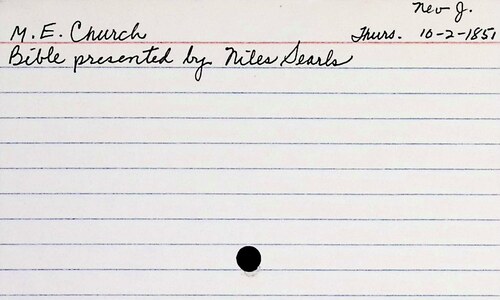 Nev J.
M. E. Church Thurs. 10-2-1851
Bible presented by Niles Searls